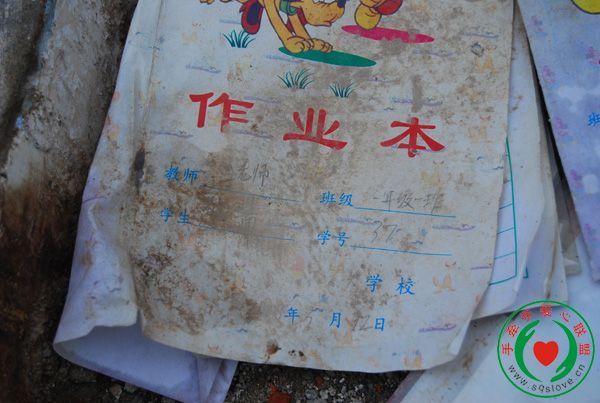 作业本
教师 老师 班级 一年级一班
学生 学号 37
学校
年 5 月 12 日
班
手牵手爱心联盟
www.sqslove.cn